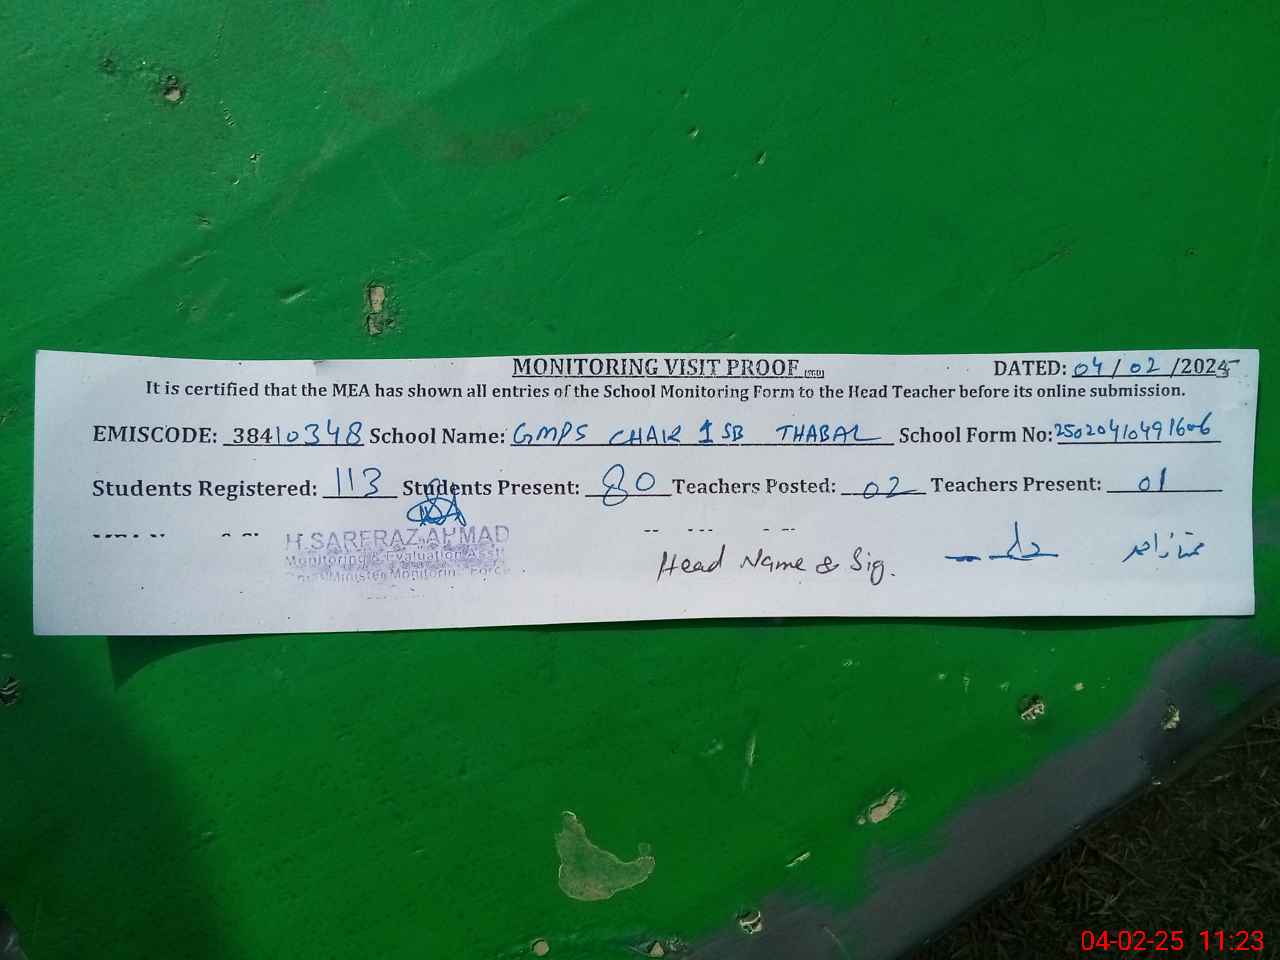 MONITORING VISIT PROOF (SGD) DATED: 04/02/2025
It is certified that the MEA has shown all entries of the School Monitoring Form to the Head Teacher before its online submission.
EMISCODE: 38410348 School Name: GMPS CHAK 1 SB THABAL School Form No: 25020410491606
Students Registered: 113 Students Present: 80 Teachers Posted: 02 Teachers Present: 01
H.SARFRAZ AHMAD
Monitoring & Evaluation Asstt
Chief Minister Monitoring Force
Head Name & Sig.
04-02-25 11:23